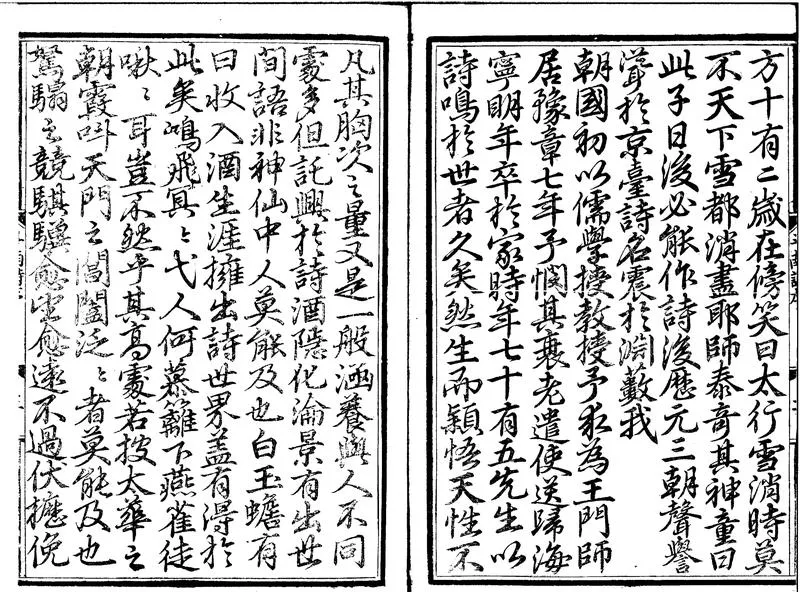 方十有二歲在傍笑曰太行雪消時莫
不天下雪都消盡耶師泰奇其神童曰
此子日後必能作詩後歷元三朝聲譽
聳於京臺詩名震於淵藪我
朝國初以儒學授教授予求為王門師
居豫章七年予憫其衰老遣使送歸海
寧明年卒於家時年七十有五先生以
詩鳴於世者久矣然生而穎悟天性不
凡其胸次之量又是一般涵養與人不同
處多但託興於詩酒隱化淪景有出世
間語非神仙中人莫能及也白玉蟾有
曰收入酒生涯擁出詩世界蓋有得於
此矣鴻飛冥〻弋人何慕籬下燕雀徒
啾〻耳豈不然乎其高處若披太華之
朝霞叫天門之閶闔泛〻者莫能及也
駑騸之競騏驥愈坐愈遠不過伏櫪俛